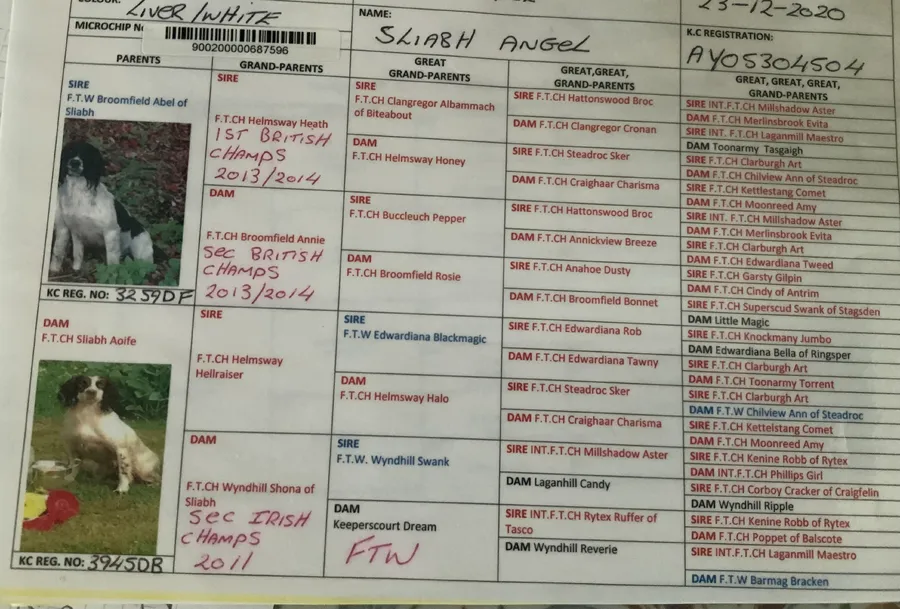 LIVER/WHITE
23-12-2020
MICROCHIP No
900200000687596
NAME:
SLIABH ANGEL
K.C REGISTRATION:
AY05304504
PARENTS
GRAND-PARENTS
GREAT
GRAND-PARENTS
GREAT,GREAT,
GRAND-PARENTS
GREAT, GREAT, GREAT,
GRAND-PARENTS
SIRE
F.T.W Broomfield Abel of
Sliabh
KC REG. NO: 3259DF
DAM
F.T.CH Sliabh Aoife
KC REG. NO: 3945DB
SIRE
F.T.CH Helmsway Heath
1ST BRITISH
CHAMPS
2013/2014
DAM
F.T.CH Broomfield Annie
SEC BRITISH
CHAMPS
2013/2014
SIRE
F.T.CH Helmsway
Hellraiser
DAM
F.T.CH Wyndhill Shona of
Sliabh
SEC IRISH
CHAMPS
2011
SIRE
F.T.CH Clangregor Albammach
of Biteabout
DAM
F.T.CH Helmsway Honey
SIRE
F.T.CH Buccleuch Pepper
DAM
F.T.CH Broomfield Rosie
SIRE
F.T.W Edwardiana Blackmagic
DAM
F.T.CH Helmsway Halo
SIRE
F.T.W. Wyndhill Swank
DAM
Keeperscourt Dream
FTW
SIRE F.T.CH Hattonswood Broc
DAM F.T.CH Clangregor Cronan
SIRE F.T.CH Steadroc Sker
DAM F.T.CH Craighaar Charisma
SIRE F.T.CH Hattonswood Broc
DAM F.T.CH Annickview Breeze
SIRE F.T.CH Anahoe Dusty
DAM F.T.CH Broomfield Bonnet
SIRE F.T.CH Edwardiana Rob
DAM F.T.CH Edwardiana Tawny
SIRE F.T.CH Steadroc Sker
DAM F.T.CH Craighaar Charisma
SIRE INT.F.T.CH Millshadow Aster
DAM Laganhill Candy
SIRE INT.F.T.CH Rytex Ruffer of
Tasco
DAM Wyndhill Reverie
SIRE INT.F.T.CH Millshadow Aster
DAM F.T.CH Merlinsbrook Evita
SIRE INT. F.T.CH Laganmill Maestro
DAM Toonarmy Tasgaigh
SIRE F.T.CH Clarburgh Art
DAM F.T.CH Chilview Ann of Steadroc
SIRE F.T.CH Kettlestang Comet
DAM F.T.CH Moonreed Amy
SIRE INT. F.T.CH Millshadow Aster
DAM F.T.CH Merlinsbrook Evita
SIRE F.T.CH Clarburgh Art
DAM F.T.CH Edwardiana Tweed
SIRE F.T.CH Garsty Gilpin
DAM F.T.CH Cindy of Antrim
SIRE F.T.CH Superscud Swank of Stagsden
DAM Little Magic
SIRE F.T.CH Knockmany Jumbo
DAM Edwardiana Bella of Ringsper
SIRE F.T.CH Clarburgh Art
DAM F.T.CH Toonarmy Torrent
SIRE F.T.CH Clarburgh Art
DAM F.T.W Chilview Ann of Steadroc
SIRE F.T.CH Kettelstang Comet
DAM F.T.CH Moonreed Amy
SIRE F.T.CH Kenine Robb of Rytex
DAM INT.F.T.CH Phillips Girl
SIRE F.T.CH Corboy Cracker of Craigfelin
DAM Wyndhill Ripple
SIRE F.T.CH Kenine Robb of Rytex
DAM F.T.CH Poppet of Balscote
SIRE INT.F.T.CH Laganmill Maestro
DAM F.T.W Barmag Bracken